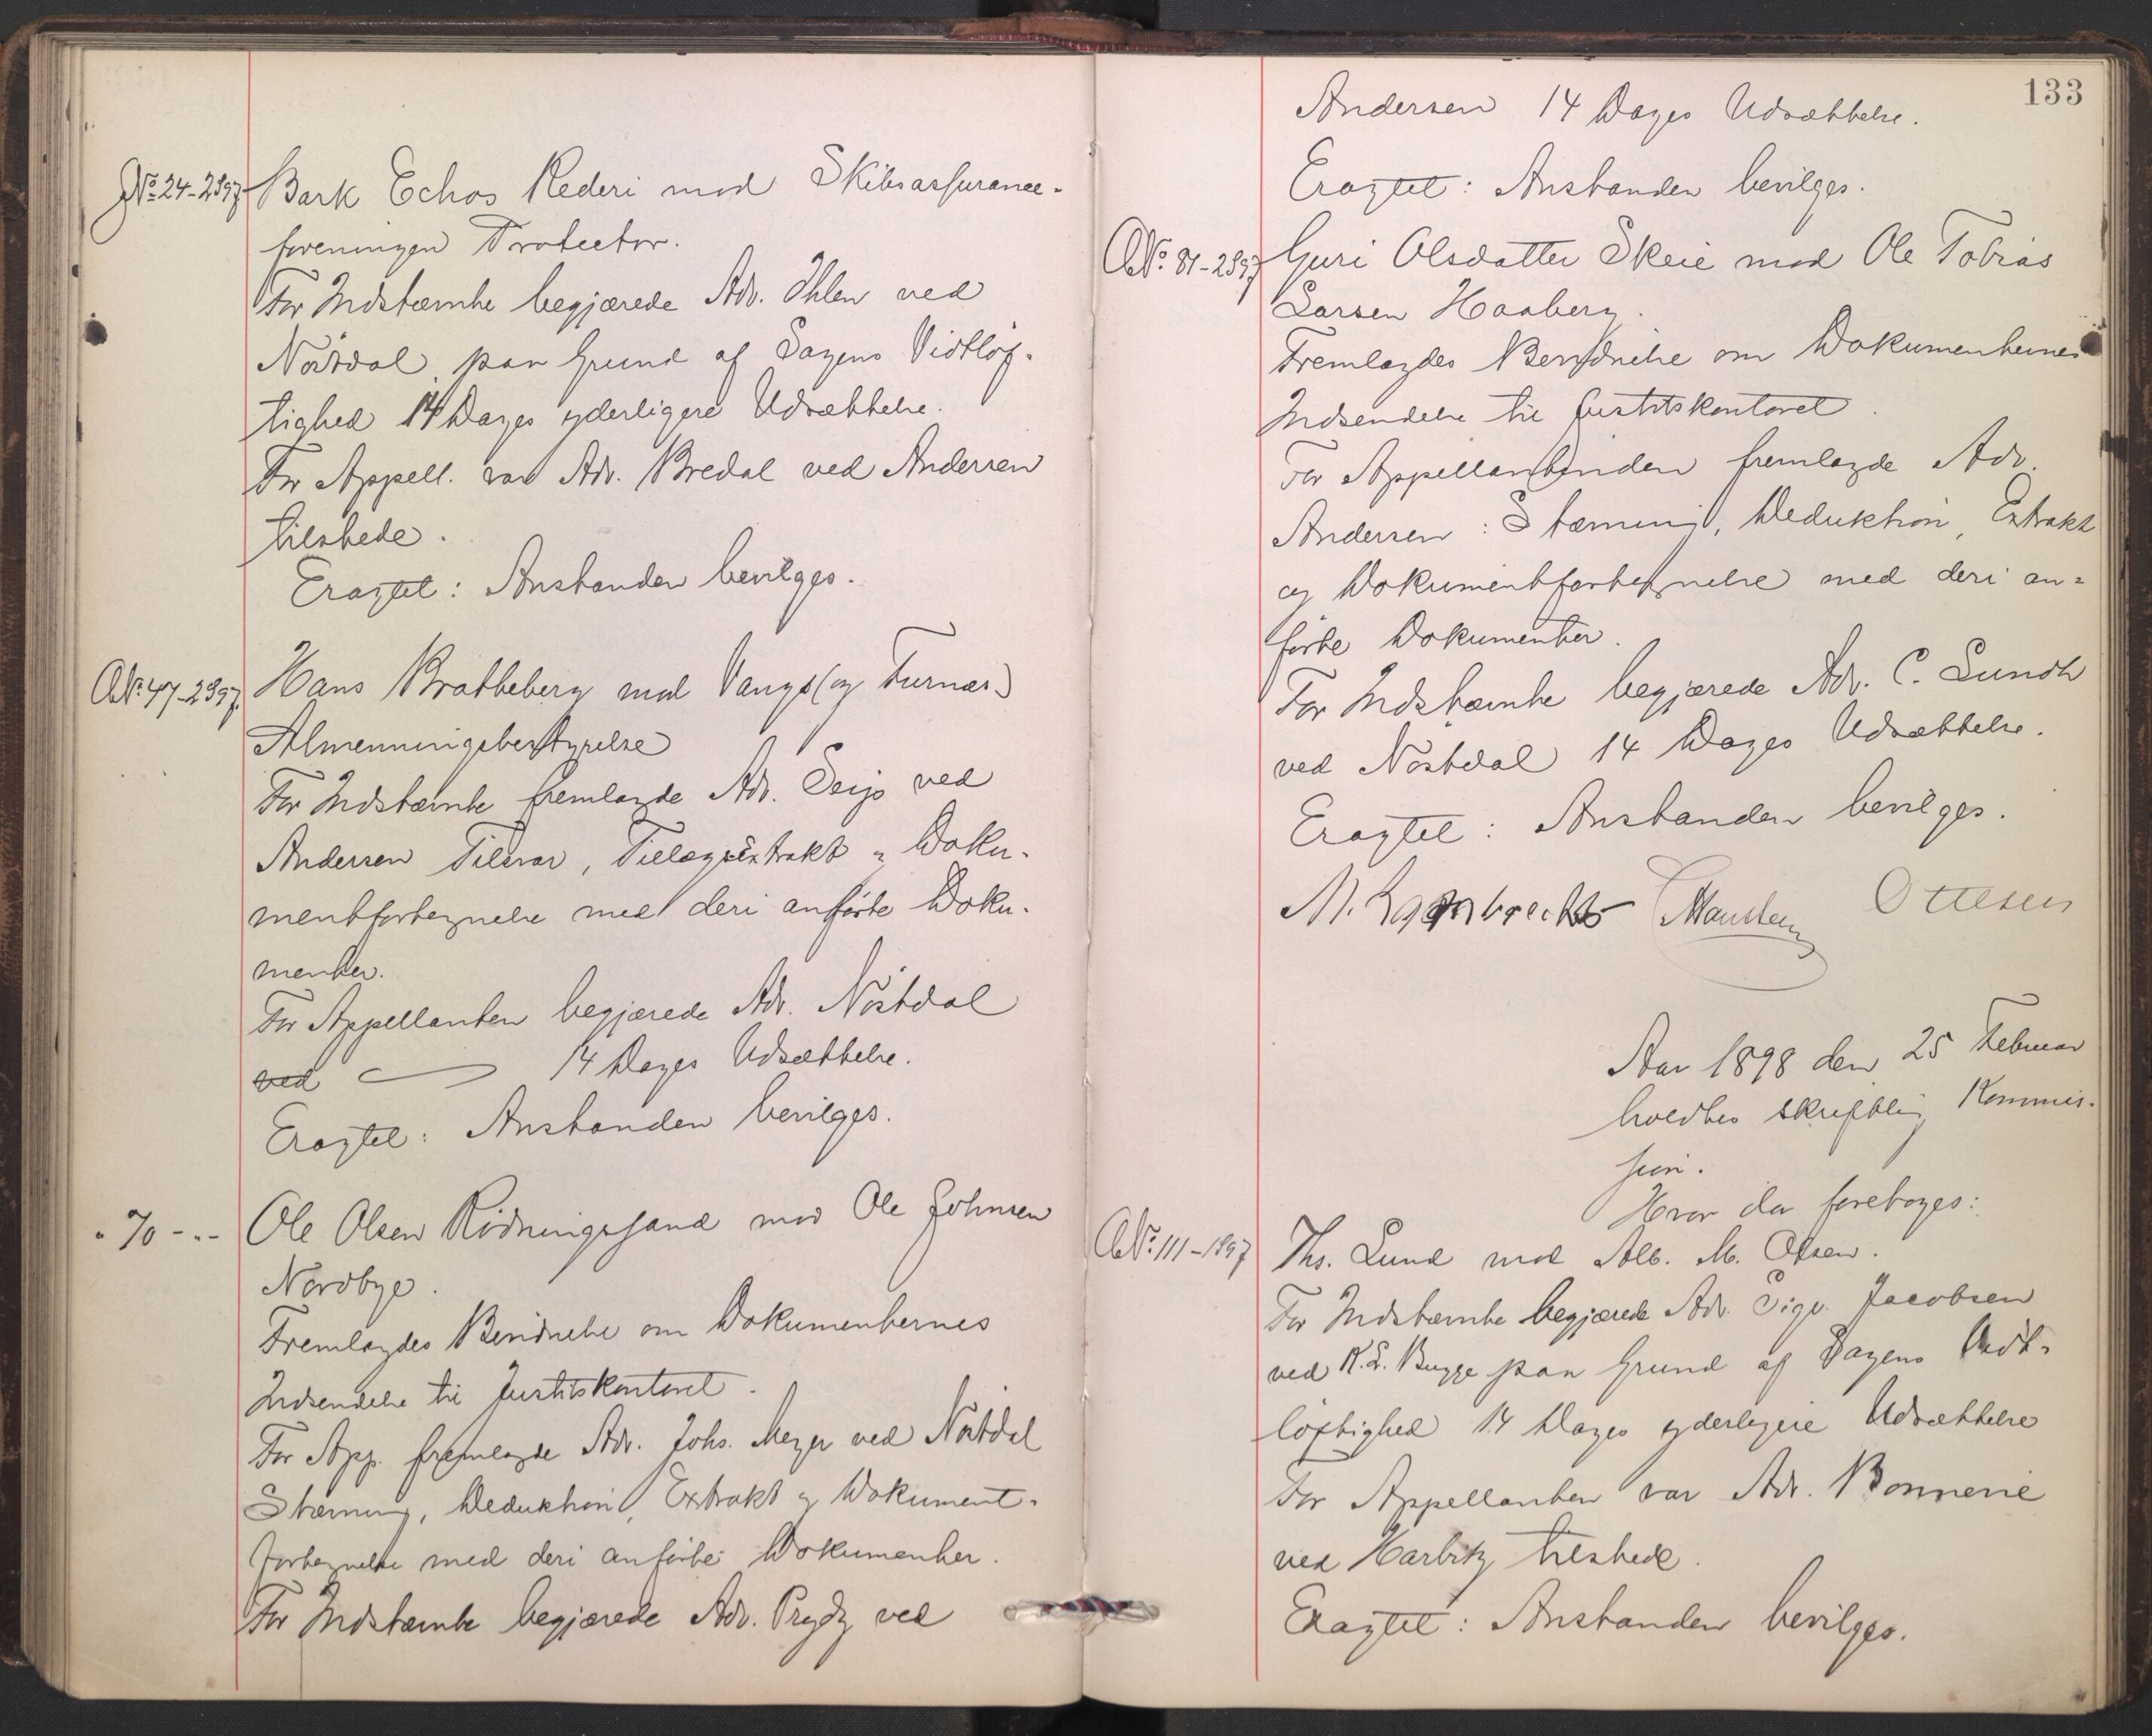 No. 24-2 97 Bark Echos Rederi mod Skibsassurance-
foreningen Protector.
For Indstævnte begjærede Adv. Ihlen ved
Nöstdal paa Grund af Sagens Vidtløf-
tighed 14 Dages yderligere Udsættelse.
For Appell. var Adv. Bredal ved Andersen
tilstede.
Eragtet: Anstanden bevilges.
A No. 47-2 97 Hans Bratteberg mod Vangs (og Furnæs)
Almenningsbestyrelse
For Indstævnte fremlagde Adv. Seip ved
Andersen Tilsvar, Tillægsextrakt og Doku-
mentfortegnelse med deri anførte Doku-
menter.
For Appellanten begjærede Adv. Nöstdal
ved 14 Dages Udsættelse.
Eragtet: Anstanden bevilges.
" 70 - " - Ole Olsen Rödningssand mod Ole Johnsen
Nordbye.
Fremlagdes Bevidnelse om Dokumenternes
Indsendelse til Justitskontoret.
For App. fremlagde Adv. Johs. Meyer ved Nöstdal
Stævning, Deduktion, Extrakt og Dokument-
fortegnelse med deri anførte Dokumenter.
For Indstævnte begjærede Adv. Prydz ved
133
Andersen 14 Dages Udsættelse.
Eragtet: Anstanden bevilges.
A No. 81-2 97 Guri Olsdatter Skeie mod Ole Tobias
Larsen Haaberg.
Fremlagdes Bevidnelse om Dokumenternes
Indsendelse til Justitskontoret.
For Appellantinden fremlagde Adv.
Andersen: Stævning, Deduktion, Extrakt
og Dokumentfortegnelse med deri an=
førte Dokumenter.
For Indstævnte begjærede Adv. C. Lundh
ved Nöstdal 14 Dages Udsættelse.
Eragtet: Anstanden bevilges.
M. Lambrechts Manthey Ottesen
Aar 1898 den 25 Februar
holdtes skriftlig Kommis-
sion.
Hvor da foretoges:
A No. 111-1 97 Ths. Lund mod Alb. M. Olsen.
For Indstævnte begjærede Adv. Sigv. Jacobsen
ved K. L. Bugge paa Grund af Sagens Vidt-
løftighed 14 Dages yderligere Udsættelse
For Appellanten var Adv. Bonnevie
ved Harbitz tilstede.
Eragtet: Anstanden bevilges.